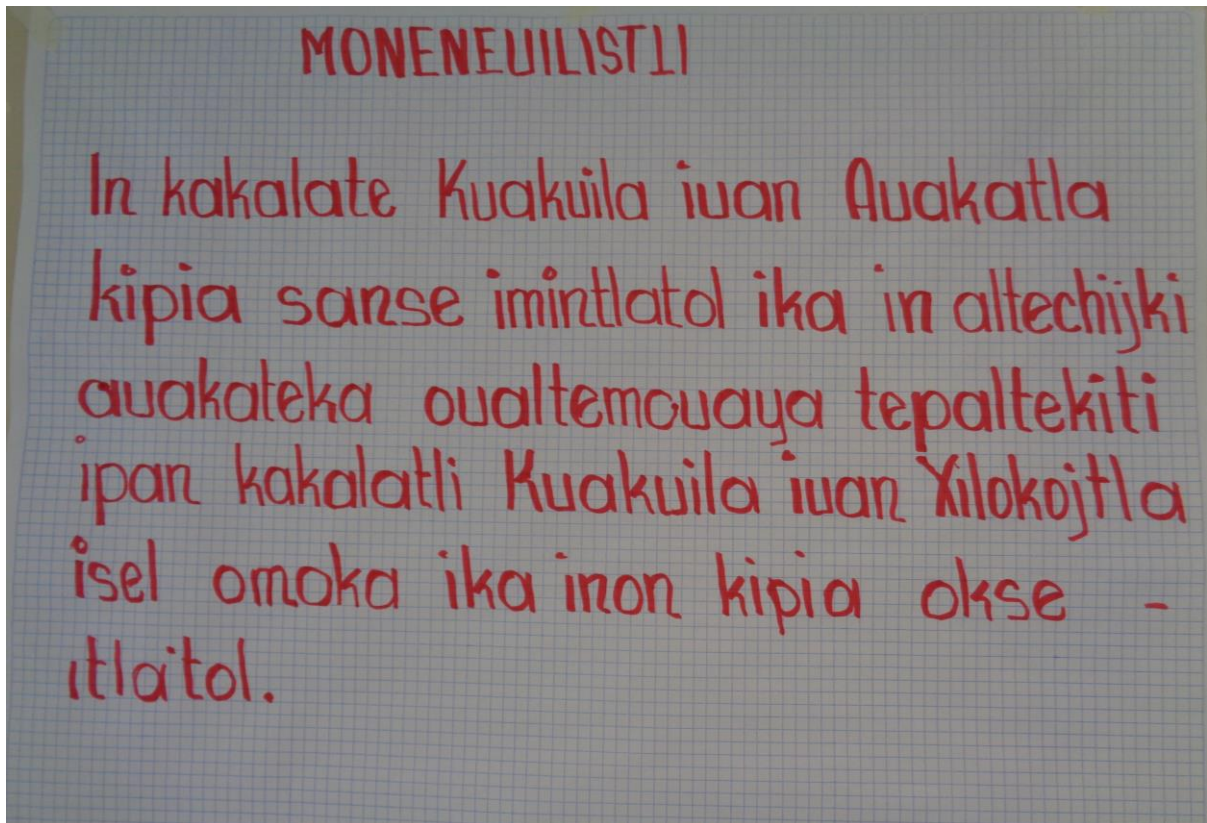 MONENEUILISTLI
In kakalate Kuakuila iuan Auakatla
kipia sanse imintlatol ika in altechijki
auakateka oualtemouaya tepaltekiti
ipan kakalatli Kuakuila iuan Xilokojtla
isel omoka ika inon kipia okse -
itlatol.